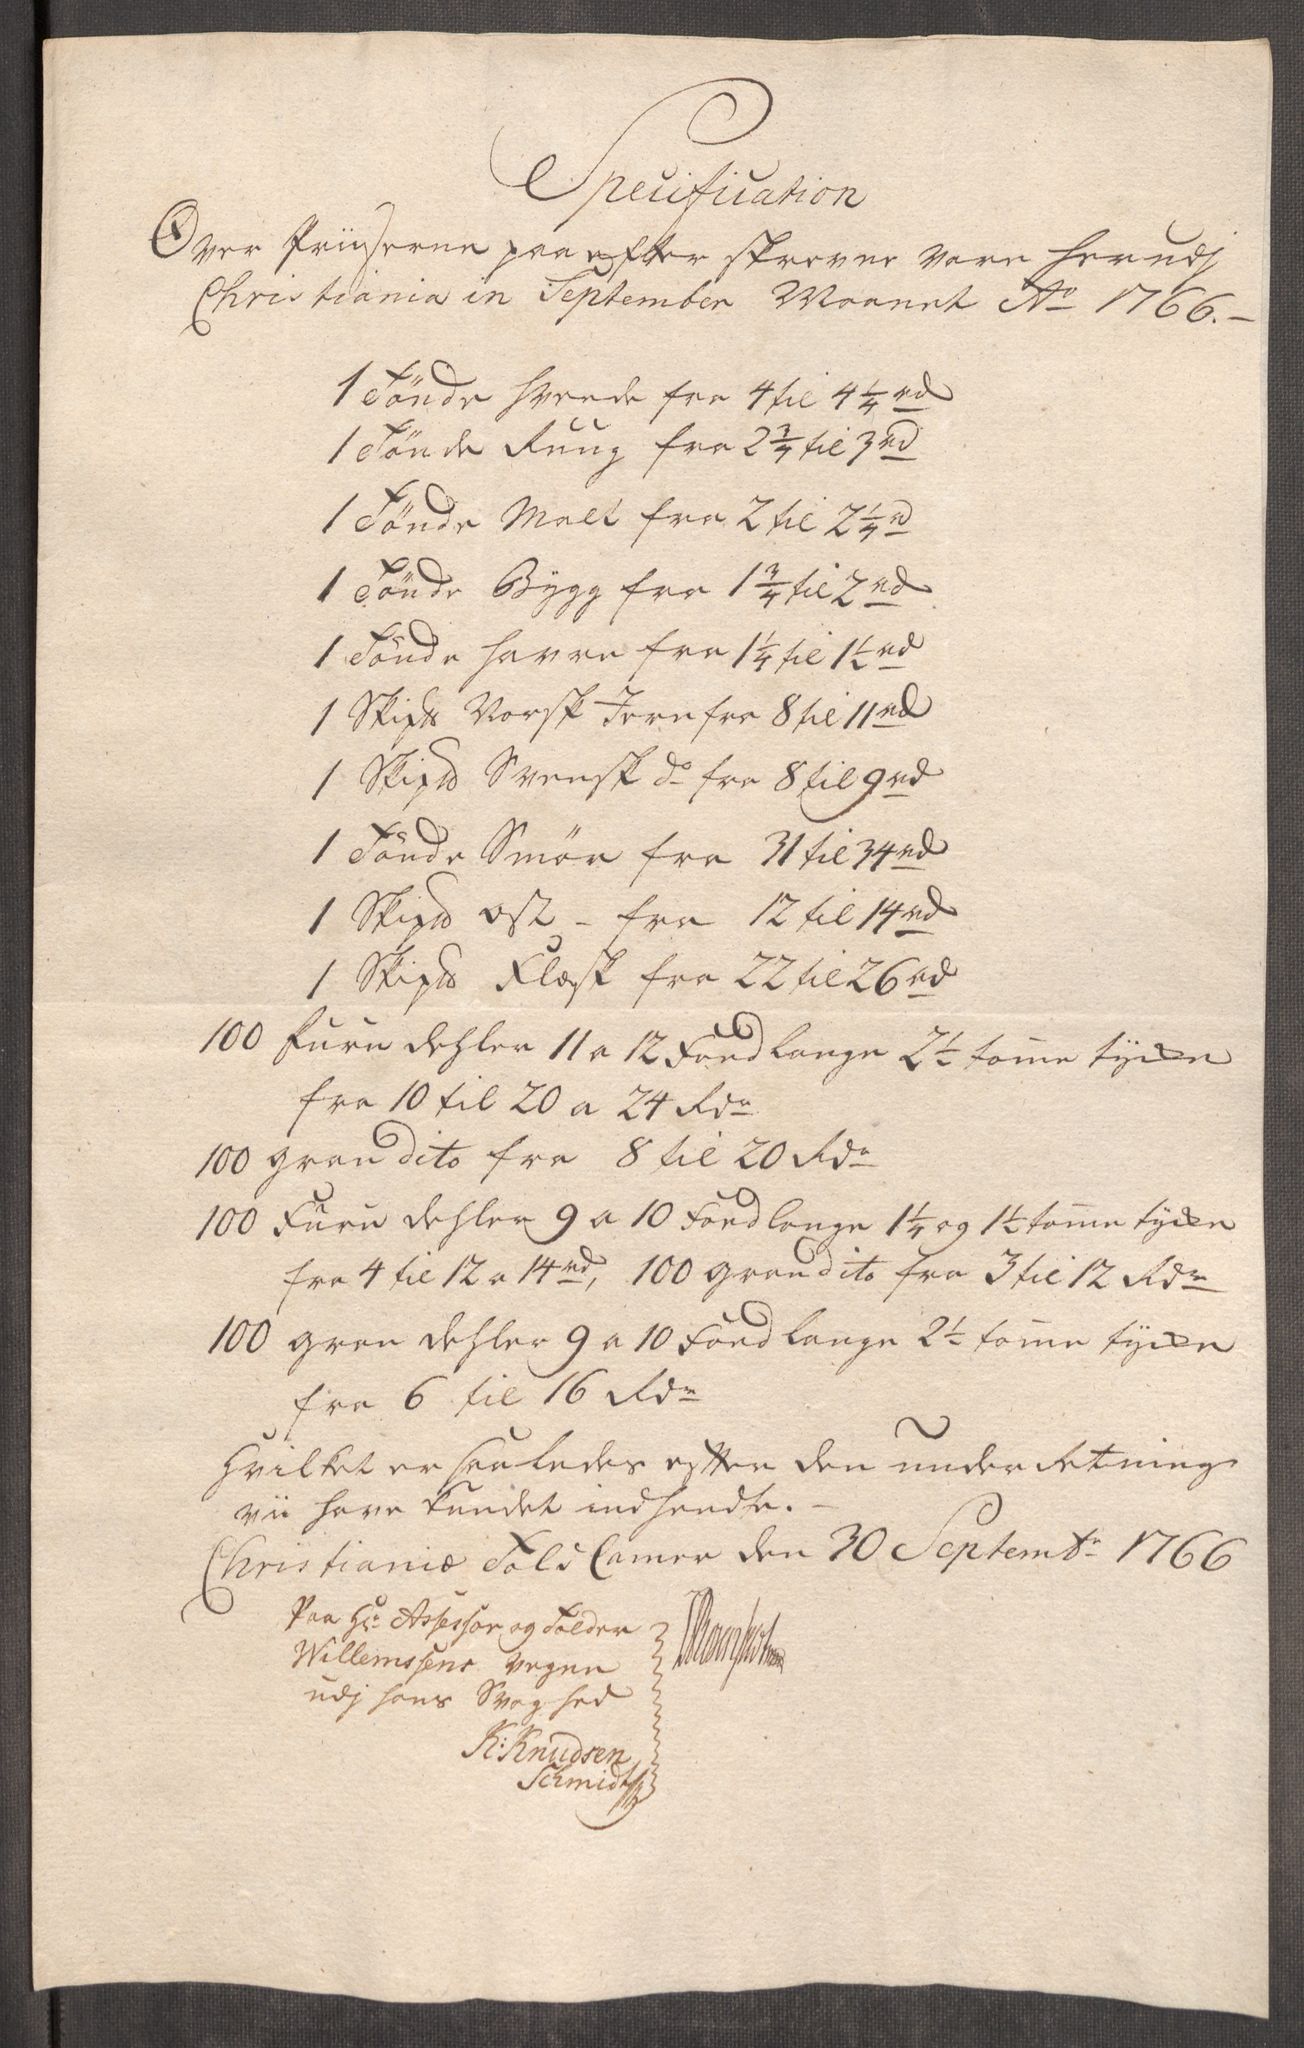 Specification
Over Priiserne paa efter skrevne vare her udj
Christiania in September Maanet Ao 1766.-
1 Tönde hvede fra 4 til 4 1/4 rd
1 Tönde Ruug fra 2 3/4 til 3 rd
1 Tönde Malt fra 2 til 2 1/4 rd
1 Tönde Bÿgg fra 1 3/4 til 2 rd
1 Tönde havre fra 1 1/4 til 1 1/2 rd
1 Skipd Norsk Jern fra 8 til 11 rd
1 Skipd Svensk do fra 8 til 9 rd
1 Tönde Smör fra 31 til 34 rd
1 Skipd ost - fra 12 til 14 rd
1 Skipd Flesk fra 22 til 26 rd
100 Furu dehler 11 a 12 Foed lange 2 1/2 tome tÿcke
fra 10 til 20 a 24 Rdr
100 gran dito fra 8 til 20 Rdr
100 Furu dehler 9 a 10 Foed lange 1 1/4 og 1 1/2 tome tÿcke
fra 4 til 12 a 14 rd, 100 gran dito fra 3 til 12 Rdr
100 gran dehler 9 a 10 Foed lange 2 1/2 tome tÿcke
fra 6 til 16 Rdr
Hvilket er saaledes efter den under Retning
vii have kundet indhendte. -
Christianiæ Told Camer den 30 Septembr 1766
Paa Hr Assessor og Tolder
Willemssens vegne
udj hans Svaghed
K: Knudsen
Schmidt